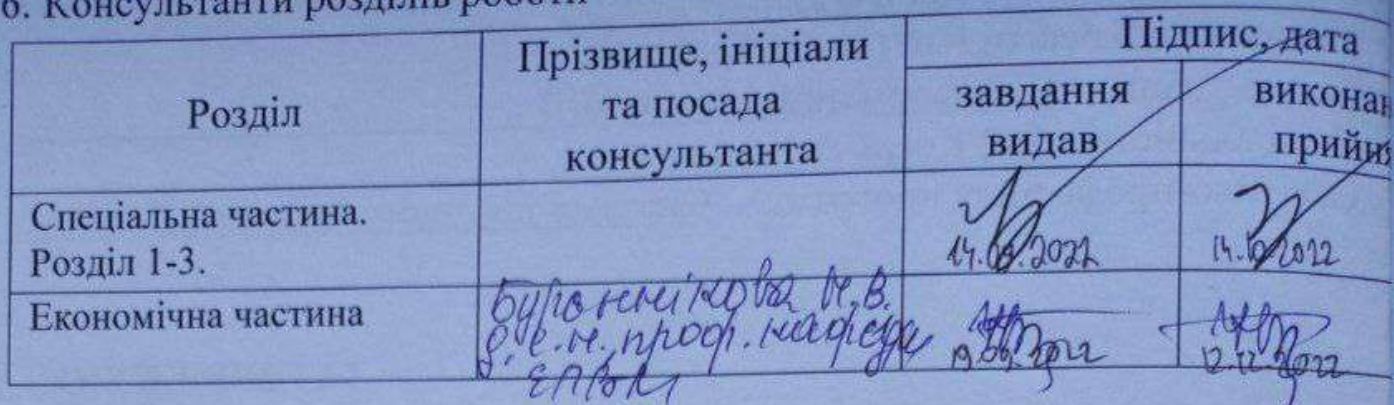 6. Консультанти розділів роботи
Розділ
Прізвище, ініціали
та посада
консультанта
Підпис, дата
завдання
видав
виконан
прийн
Спеціальна частина.
Розділ 1-3.
14.09.2022
14.2022
Економічна частина
Н.В.
д.е.н., проф. кафедри
19.09.2022
12.12.2022